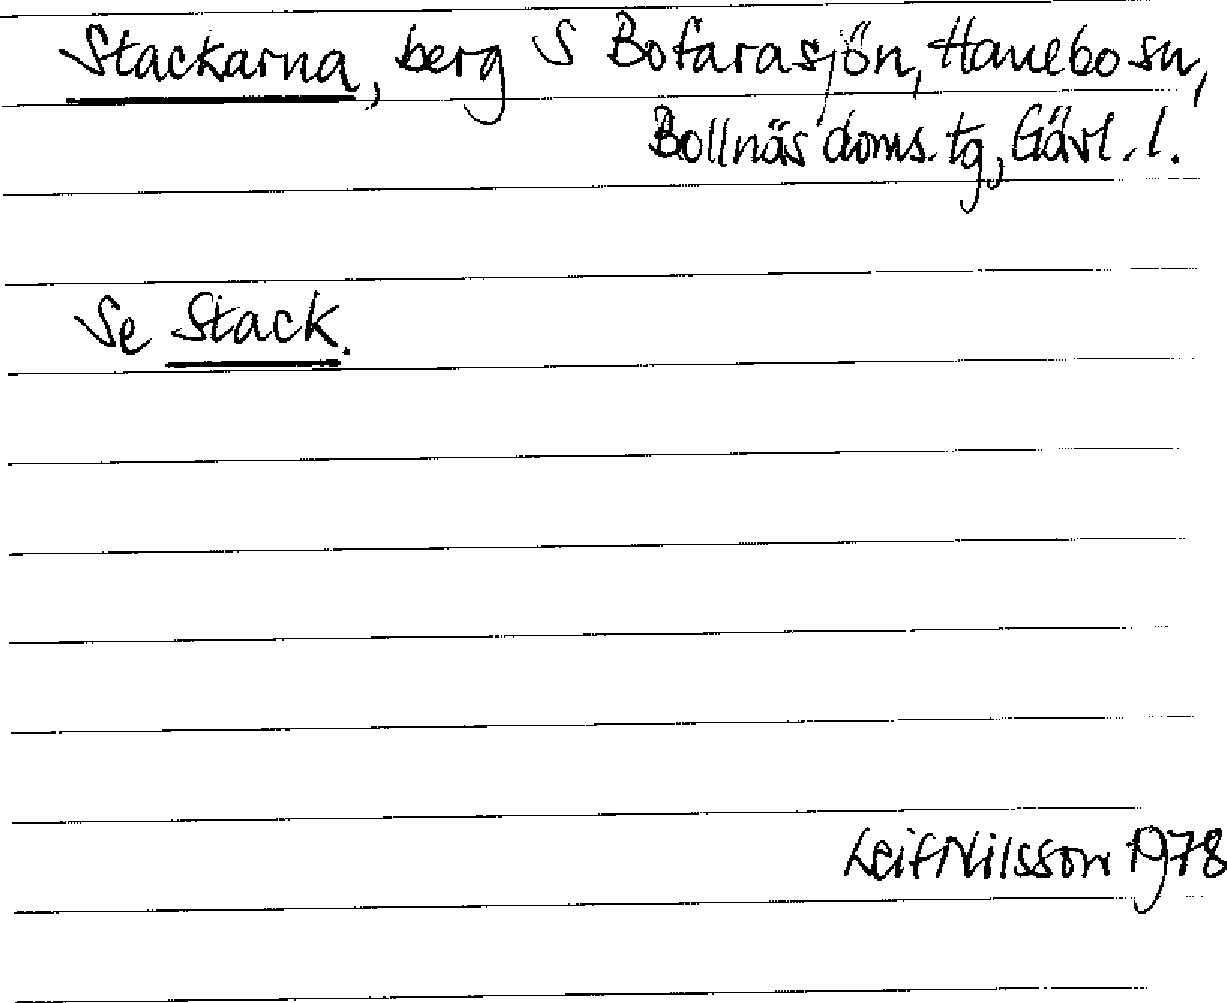 Stackarna, berg S Bofarasjön, Hanebo sn,
Bollnäs doms. tg, Gävl. l.
Se Stack.
Leif Nilsson 1978